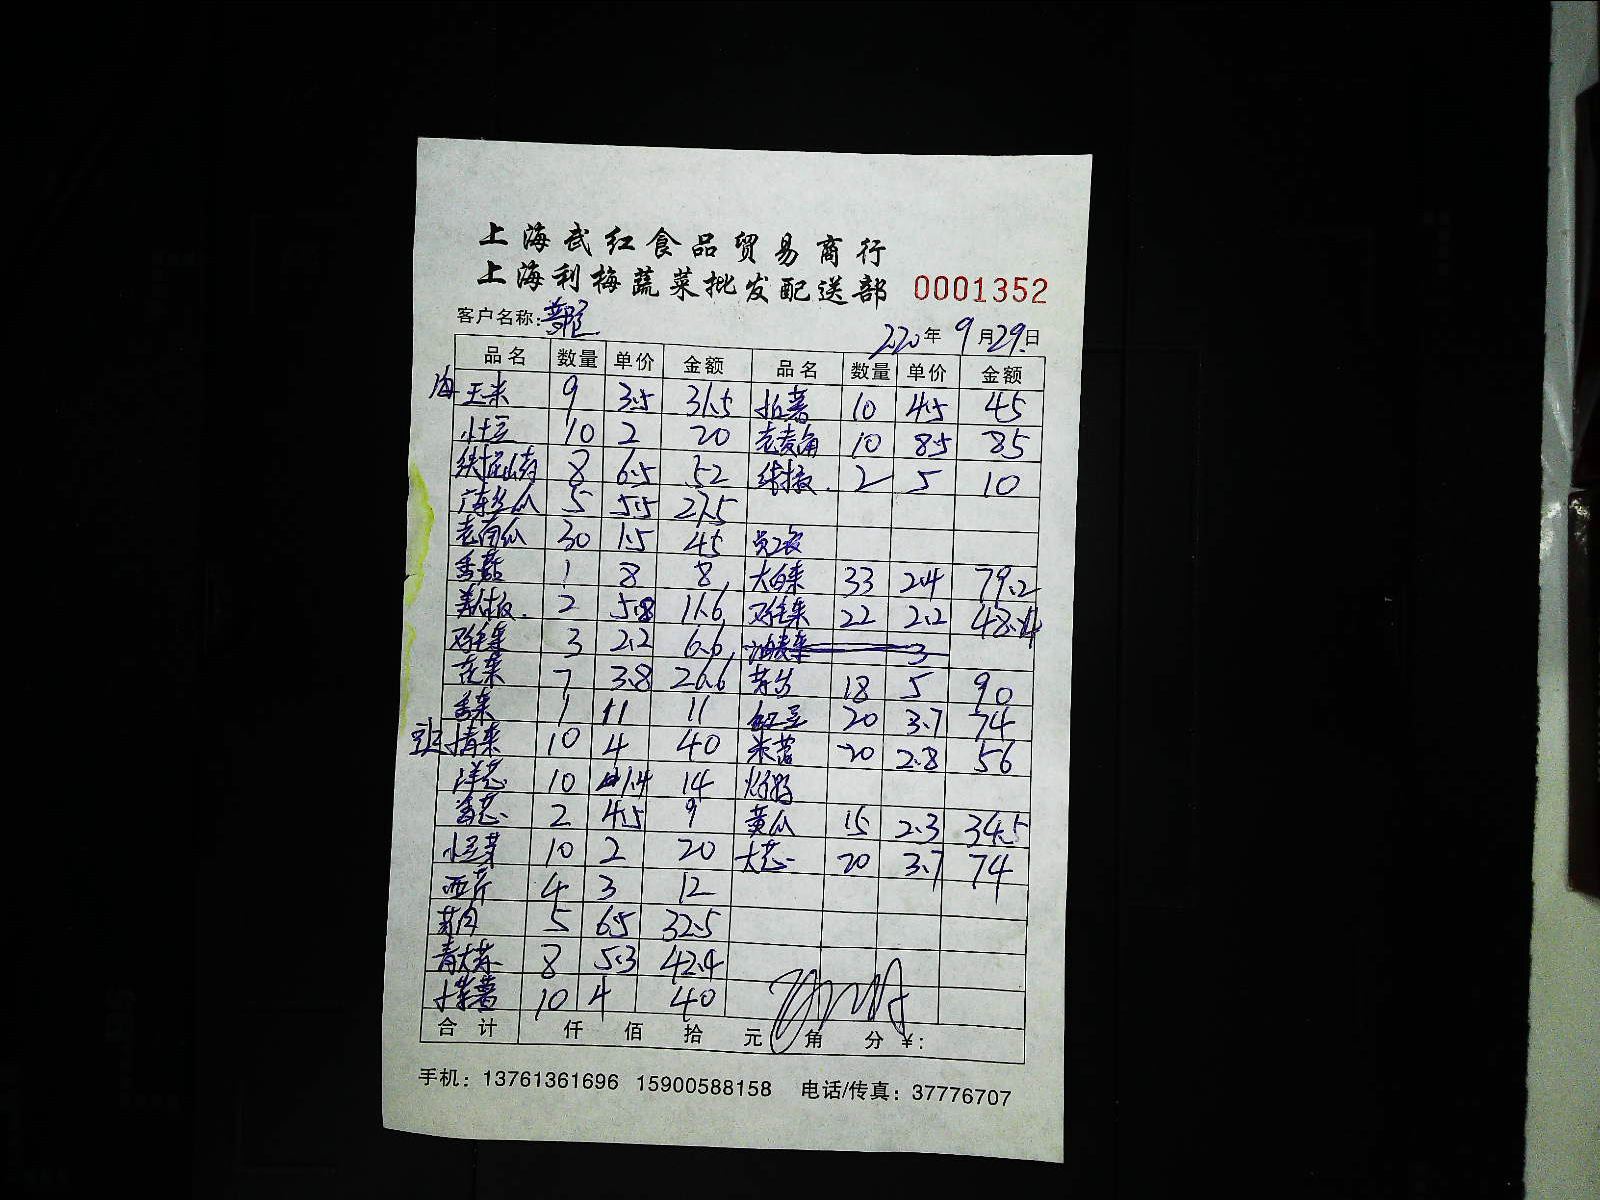 上海武红食品贸易商行
上海利梅蔬菜批发配送部 0001352
客户名称:
2020年 9月29日
品名 数量 单价 金额 品名 数量 单价 金额
玉米 9 3.5 31.5 10 4.5 45
小土豆 10 2 20 老菱角 10 8.5 85
铁棍山药 8 6.5 52 2 5 10
广东丝瓜 5 5.5 27.5
老南瓜 30 1.5 45 员工餐
香菇 1 8 8 大白菜 33 2.4 79.2
2 5.8 11.6 鸡毛菜 22 2.2 48.4
鸡毛菜 3 2.2 6.6 油麦菜 3
花菜 7 3.8 26.6 18 5 90
香菜 1 11 11 20 3.7 74
10 4 40 20 2.8 56
洋葱 10 1.4 14
香葱 2 4.5 9 黄瓜 15 2.3 34.5
小豆芽 10 2 20 大葱 20 3.7 74
西芹 4 3 12
5 6.5 32.5
8 5.3 42.4
10 4 40
合计 仟 佰 拾 元 角 分 ¥:
手机: 13761361696 15900588158 电话/传真: 37776707